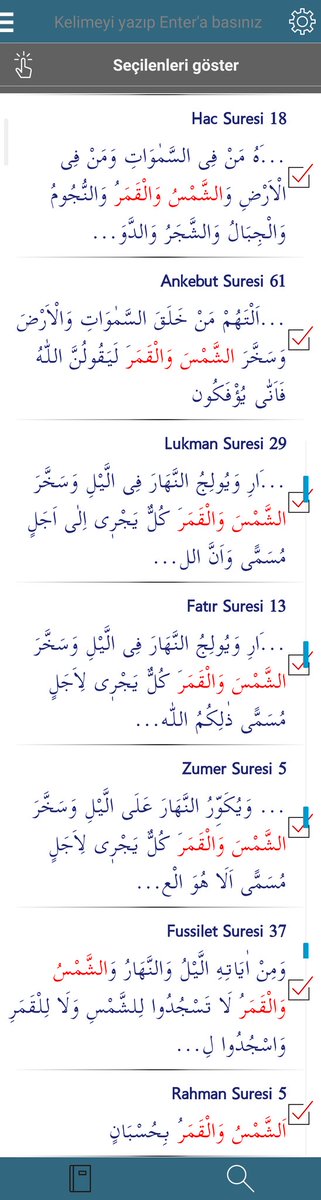 Kelimeyi yazıp Enter'a basınız
Seçilenleri göster
Hac Suresi 18
...هُ مَنْ فِى السَّمٰوَاتِ وَمَنْ فِى
الْاَرْضِ وَالشَّمْسُ وَالْقَمَرُ وَالنُّجُومُ
وَالْجِبَالُ وَالشَّجَرُ وَالدَّوَ...
Ankebut Suresi 61
...اَلْتَهُمْ مَنْ خَلَقَ السَّمٰوَاتِ وَالْاَرْضَ
وَسَخَّرَ الشَّمْسَ وَالْقَمَرَ لَيَقُولُنَّ اللّٰهُ
فَاَنّٰى يُؤْفَكُون
Lukman Suresi 29
...َارِ وَيُولِجُ النَّهَارَ فِى الَّيْلِ وَسَخَّرَ
الشَّمْسَ وَالْقَمَرَ كُلٌّ يَجْرِى اِلٰى اَجَلٍ
مُسَمًّى وَاَنَّ الل...
Fatır Suresi 13
...َارِ وَيُولِجُ النَّهَارَ فِى الَّيْلِ وَسَخَّرَ
الشَّمْسَ وَالْقَمَرَ كُلٌّ يَجْرِى لِاَجَلٍ
مُسَمًّى ذٰلِكُمُ اللّٰه...
Zumer Suresi 5
... وَيُكَوِّرُ النَّهَارَ عَلَى الَّيْلِ وَسَخَّرَ
الشَّمْسَ وَالْقَمَرَ كُلٌّ يَجْرِى لِاَجَلٍ
مُسَمًّى اَلَا هُوَ الْع...
Fussilet Suresi 37
وَمِنْ اٰيَاتِهِ الَّيْلُ وَالنَّهَارُ وَالشَّمْسُ
وَالْقَمَرُ لَا تَسْجُدُوا لِلشَّمْسِ وَلَا لِلْقَمَرِ
وَاسْجُدُوا لِ...
Rahman Suresi 5
اَلشَّمْسُ وَالْقَمَرُ بِحُسْبَانٍ